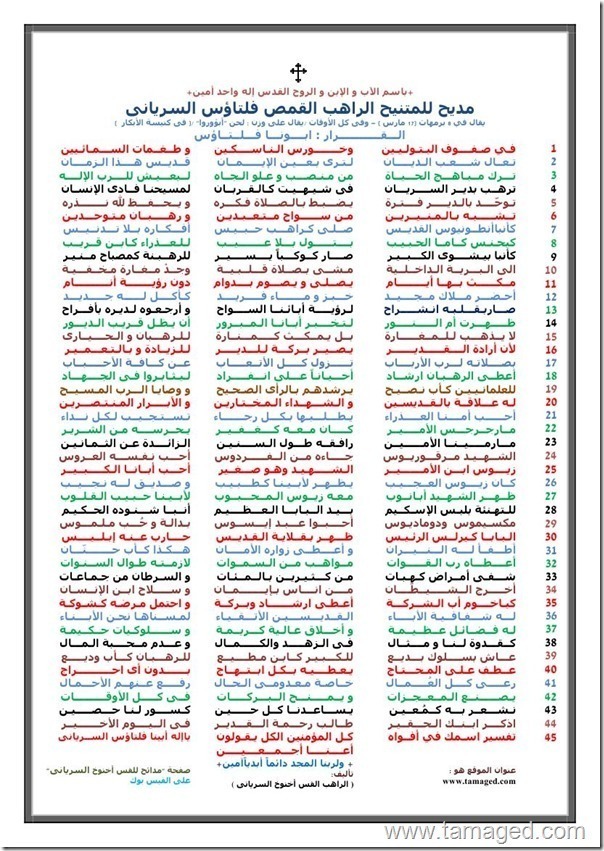 +باسم الآب و الإبن و الروح القدس إله واحد أمين+
مديح للمتنيح الراهب القمص فلتاؤس السريانى
القــرار : ابونا فلتاؤس
1 فى صفوف البتوليين وخورس الناسكين و طغمات السمائيين
2 تعال شعب الديان لترى بعين الإيمان قديس هذا الزمان
3 ترك مباهج الحياة من منصب و علو الجاه ليعيش للرب الإله
4 ترهب بدير السريان فى شيهيت كالقربان لمسيحنا فادى الإنسان
5 توحّد بالدير فترة يضبط بالصلاة فكره و يحفظ لله نذره
6 تشبه بالمنيرين من سواح متعبدين و رهبان متوحدين
7 كأنبا أنطونيوس القديس صلى كراهب حبيس أفكاره بلا تدنيس
8 كيحنس كاما الحبيب بتول بلا عيب للعذراء كابن قريب
9 كأنبا بيشوى الكبير صار كوكباً يسير للرهبنة كمصباح منير
10 الى البرية الداخلية مشى بصلاة قلبية وجدّ مغارة مخفية
11 مكث بها أيام يصلى و يصوم بدوام دون رؤية أنام
12 أحضر ملاك مجيد خبز و ماء فريد كأكل له جديد
13 صار بقلبه انشراح لرؤية أبائنا السواح و أرجعوه لديره بأفراح
14 ظهرت أم النور لتخبر أبانا المبرور أن يظل قريب الدير
15 لا يذهب للمغارة بل يمكث كمنارة للرهبان و الحيارى
16 لأن أرادة القدير يصير بركة للدير للزيادة و بالتعمير
17 بصلاته لرب الأرباب تزول كل الأتعاب عن كافة الأحباب
18 أعطى الرهبان ارشاد أحياناً على انفراد ليثابروا فى الجهاد
19 للعلمانيين كأب نصيح يرشدهم بالرأى الصحيح و وصايا الرب المسيح
20 له علاقة بالقديسين و الشهداء المختارين و الأبرار المنتصرين
21 أحب أمنا العذراء يطلبها بكل رجاء تستجيب لكل نداء
22 مارجرجس الأمير كان معه كغفير يحرسه من الشرير
23 مارمينا الأمين رافقه طول السنين الزائدة عن الثمانين
24 الشهيد مرقوريوس جاءه من الفردوس أحب نفسه العروس
25 زيوس ابن الأمير الشهيد وهو صغير أحب أبانا الكبير
26 كان زيوس العجيب يظهر لأبينا كطبيب و صديق له نجيب
27 ظهر الشهيد أبانوب معه زيوس المحبوب لأبينا حبيب القلوب
28 للتهنئة بلبس الإسكيم بيد البابا العظيم أنبا شنوده الحكيم
29 مكسيموس ودوماديوس أحبوا عبد إيسوس بدالة و حُب ملموس
30 البابا كيرلس الرئيس ظهر بقلاية القديس حارب عنه إبليس
31 أطفأ له النيران و أعطى زواره الأمان هكذا كأب حنّان
32 أعطاه رب القوات مواهب من السموات لازمته طوال السنوات
33 شفى أمراض كهبات من كثيرين بالمئات و السرطان من جماعات
34 أخرج الشيطان من اناس بإيمان و سلاح ابن الإنسان
35 كباخوم أب الشركة أعطى ارشاد وبركة و احتمل مرضه كشوكة
36 له شفافية الأباء القديسين الأتقياء لمسناها نحن الأبناء
37 له فضائل عظيمة و أخلاق عالية كريمة و سلوكيات حكيمة
38 كقدوة لنا و مثال فى الزهد والكمال و عدم محبة المال
39 عاش بسلوك بديع للكبير كابن مطيع للرهبان كأب وديع
40 عطف على المحتاج يعطيه بكل ابتهاج بدون أى احراج
41 رعى كل العُمال خاصة معدومى الحال رفع عنهم الأحمال
42 يصنع المعجزات و يمنح البركات فى كل الأوقات
43 نشعر به كمُعين يساعدنا كل حين كسور لنا حصين
44 اذكر ابنك الحقير طالب رحمة القدير فى اليوم الأخير
45 تفسير اسمك فى أفواه كل المؤمنين الكل يقولون ياإله أبينا فلتاؤس السريانى
أعنا أجمعين
+ ولربنا المجد دائماً أبدياً آمين+
عنوان الموقع هو :
www.tamaged.com
تأليف:
( الراهب القس أخنوخ السريانى )
صفحة "مدائح للقس أخنوخ السريانى"
على الفيس بوك
www.tamaged.com